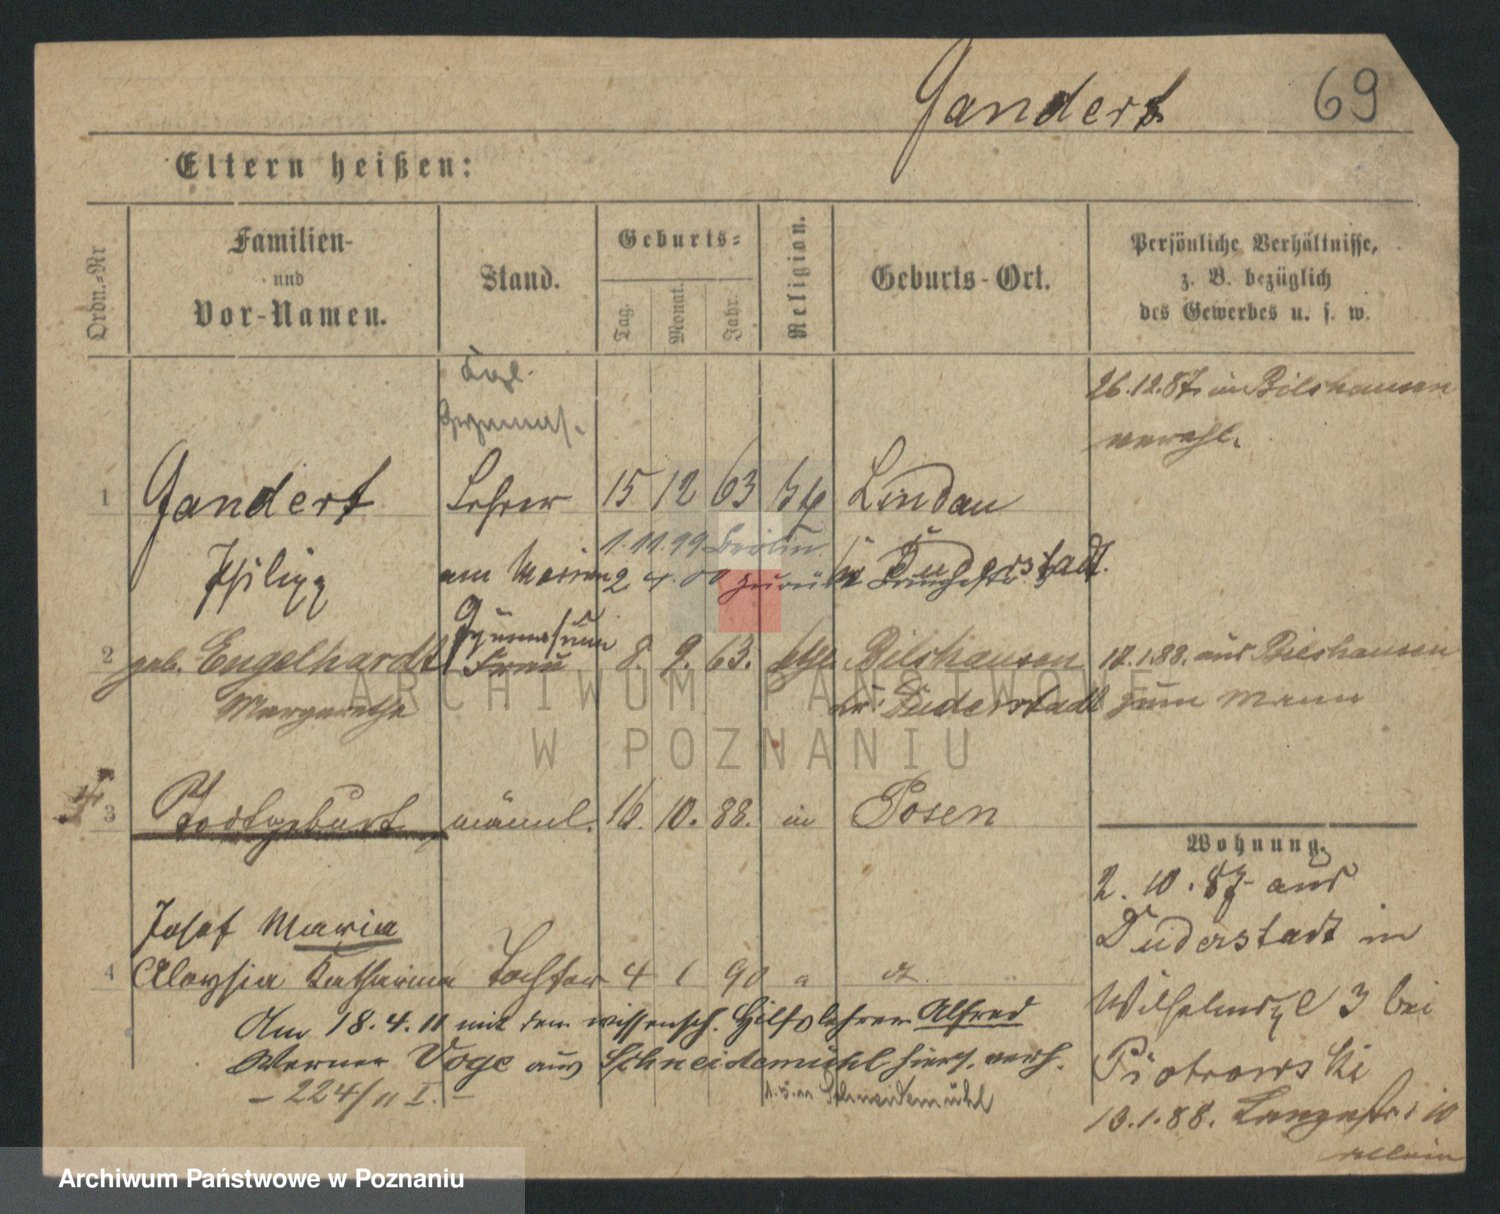 Gandert 69
Eltern heißen:
Ordn.-Nr
Familien-
und
Vor-Namen.
Stand.
Geburts-
Tag.
Monat.
Jahr.
Religion.
Geburts-Ort.
Persönliche Verhältnisse,
z. B. bezüglich
des Gewerbes u. s. w.
26.12.87. in Bilshausen
verehl.
Kgl.
Gymnas.
1 Gandert Lehrer 15 12 63 kth Lindau
1.11.99 Berlin
Philipp am Marien 2 4 00 zurück Duderstadt.
Gymnasium
2 geb. Engelhardt Frau 8. 2. 63. kth. Bilshausen 11.1.88. aus Bilshausen
Margarethe Kr. Duderstadt zum Mann
3 Todtgeburt männl. 16. 10. 88. in Posen
Wohnung.
2. 10. 87 aus
Duderstadt in
Josef Maria
4 Aloysia Katharina Tochter 4 1 90
Wilhelmspl 3 bei
Am 18.4.11 mit dem wissensch. Hilfslehrer Alfred
Werner Voge aus Schneidemühl hiers. verh.
Piotrowski
– 224/11 I. –
1.5.11 Schneidemühl
13.1.88. Langestr. 10
allein
ARCHIWUM PAŃSTWOWE
W POZNANIU
Archiwum Państwowe w Poznaniu